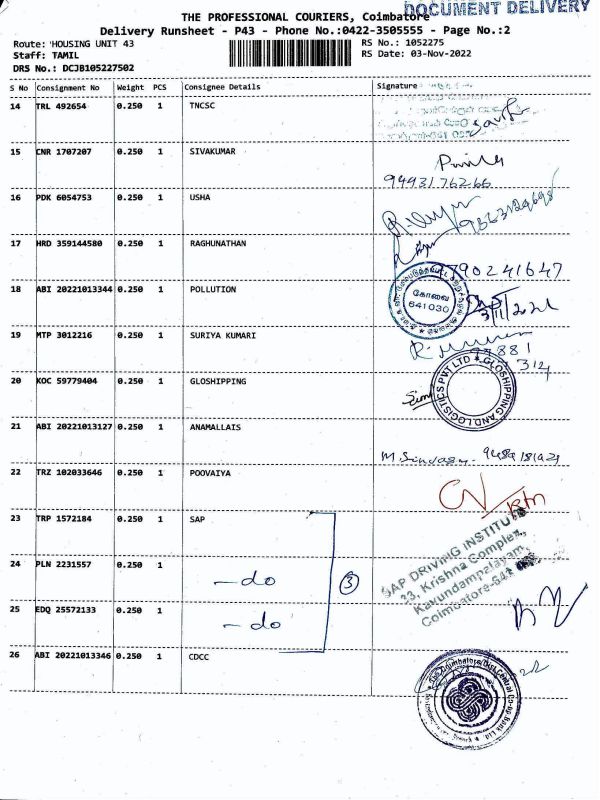 DOCUMENT DELIVERY
THE PROFESSIONAL COURIERS, Coimbatore
Delivery Runsheet - P43 - Phone No.:0422-3505555 - Page No.:2
Route: 'HOUSING UNIT 43
RS No.: 1052275
Staff: TAMIL
RS Date: 03-Nov-2022
DRS No.: DCJB105227502
S No Consignment No Weight PCS Consignee Details Signature
14 TRL 492654 0.250 1 TNCSC
15 CNR 1707207 0.250 1 SIVAKUMAR
9493176266
16 PDK 6054753 0.250 1 USHA
17 HRD 359144580 0.250 1 RAGHUNATHAN
9790241647
18 ABI 20221013344 0.250 1 POLLUTION
கோவை
641030
19 MTP 3012216 0.250 1 SURIYA KUMARI
314
20 KOC 59779404 0.250 1 GLOSHIPPING
GLOSHIPPING AND LOGISTICS PVT LTD
21 ABI 20221013127 0.250 1 ANAMALLAIS
22 TRZ 102033646 0.250 1 POOVAIYA
23 TRP 1572184 0.250 1 SAP
SAP DRIVING INSTITUTE
33, Krishna Complex,
Kavundampalayam,
Coimbatore-641
24 PLN 2231557 0.250 1 - do
3
25 EDQ 25572133 0.250 1 - do
26 ABI 20221013346 0.250 1 CDCC